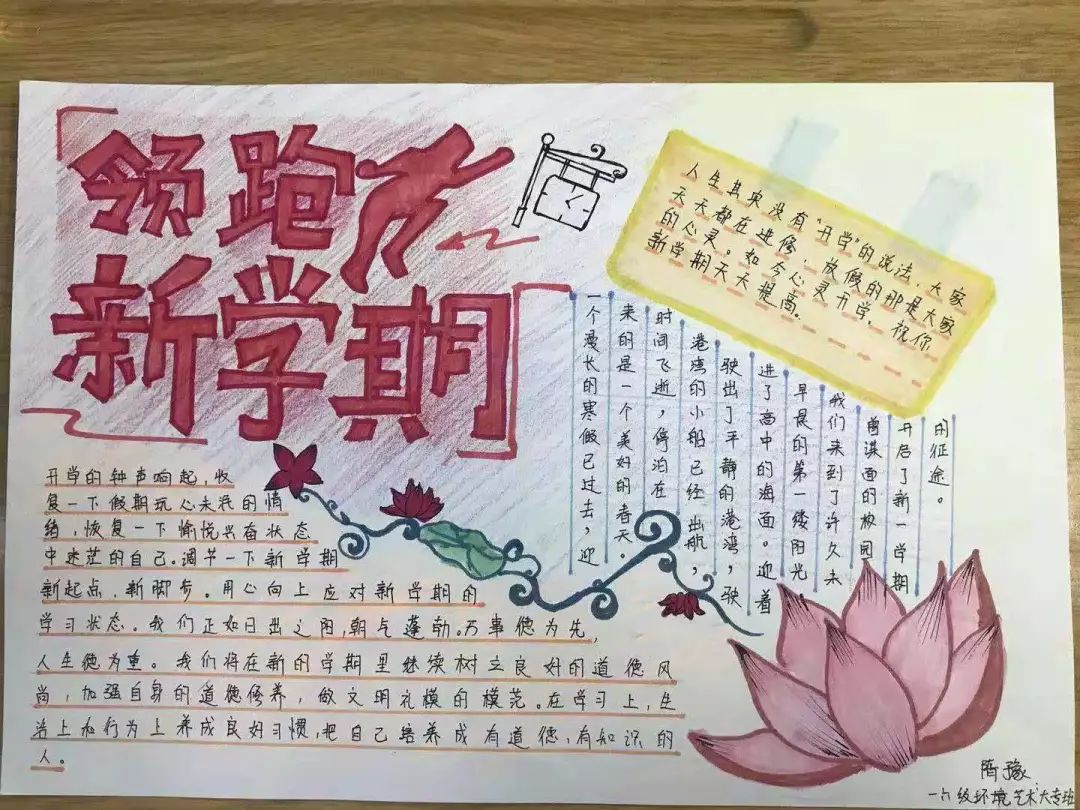 领跑
新学期
人生其实没有“开学”的说法，大家
天天都在进修，放假的那是大家
的心灵。如今心灵开学，祝你
新学期天天提高。
一个漫长的寒假已过去，迎
来的是一个美好的春天。
时间飞逝，停泊在
港湾的小船已经出航，
驶出了平静的港湾，驶
进了高中的海面。迎着
早晨的第一缕阳光，
我们来到了许久未
曾谋面的校园
开启了新一学期
的征途。
开学的钟声响起，收
复一下假期玩心未泯的情
绪，恢复一下愉悦兴奋状态
中迷茫的自己。调节一下新学期
新起点，新脚步。用心向上应对新学期的
学习状态。我们正如日出之阳，朝气蓬勃。万事德为先，
人生德为重。我们将在新的学期里继续树立良好的道德风
尚，加强自身的道德修养，做文明礼模的模范。在学习上，生
活上和行为上养成良好习惯，把自己培养成有道德，有知识的
人。
豫
一六级环境艺术大专班